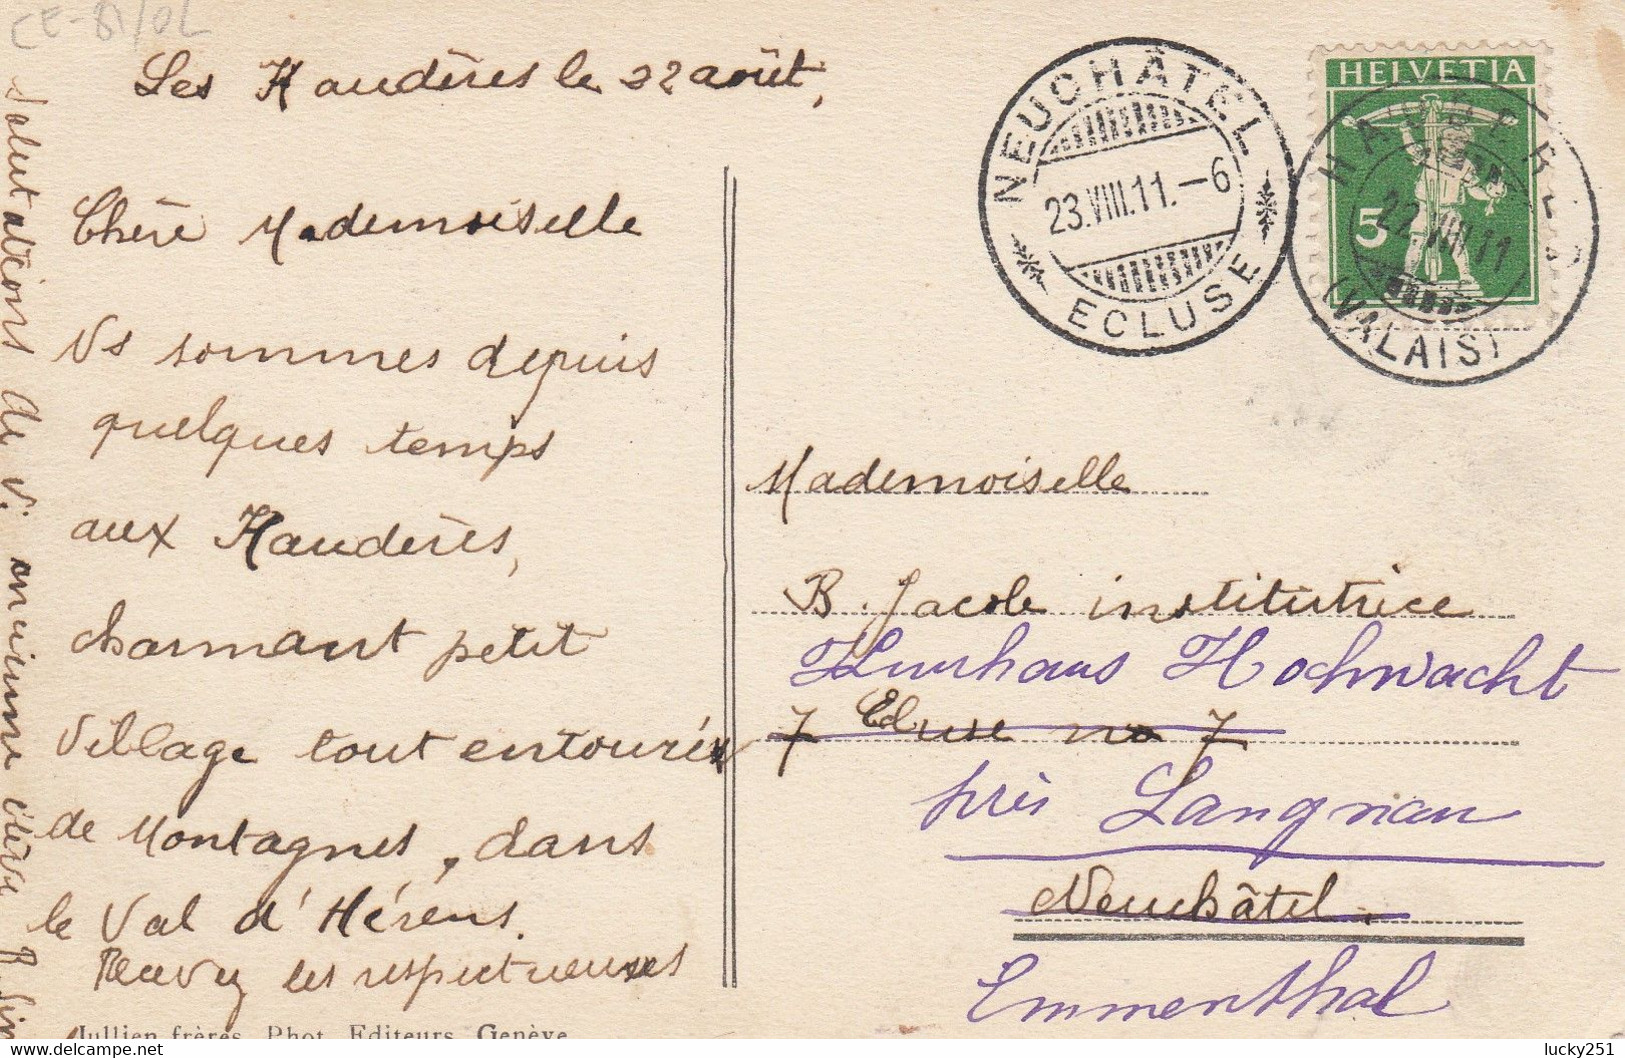 CE-81/02
Les Haudères le 22 août,
Chère Mademoiselle
Ns sommes depuis
quelques temps
aux Haudères,
charmant petit
village tout entouré
de Montagnes, dans
le Val d'Hérens.
Recevez les respectueuses
salutations de v. ancienne élève
Jullien frères, Phot. Editeurs, Genève
NEUCHÂTEL
23.VIII.11.-6
ECLUSE
HELVETIA
5
HAUDERES
22.VIII.11
(VALAIS)
Mademoiselle
B. Jacole institutrice
Kurhaus Hochwacht
7 Ecluse no 7
près Langnau
Neuchâtel.
Emmenthal
lucky251
delcampe.net